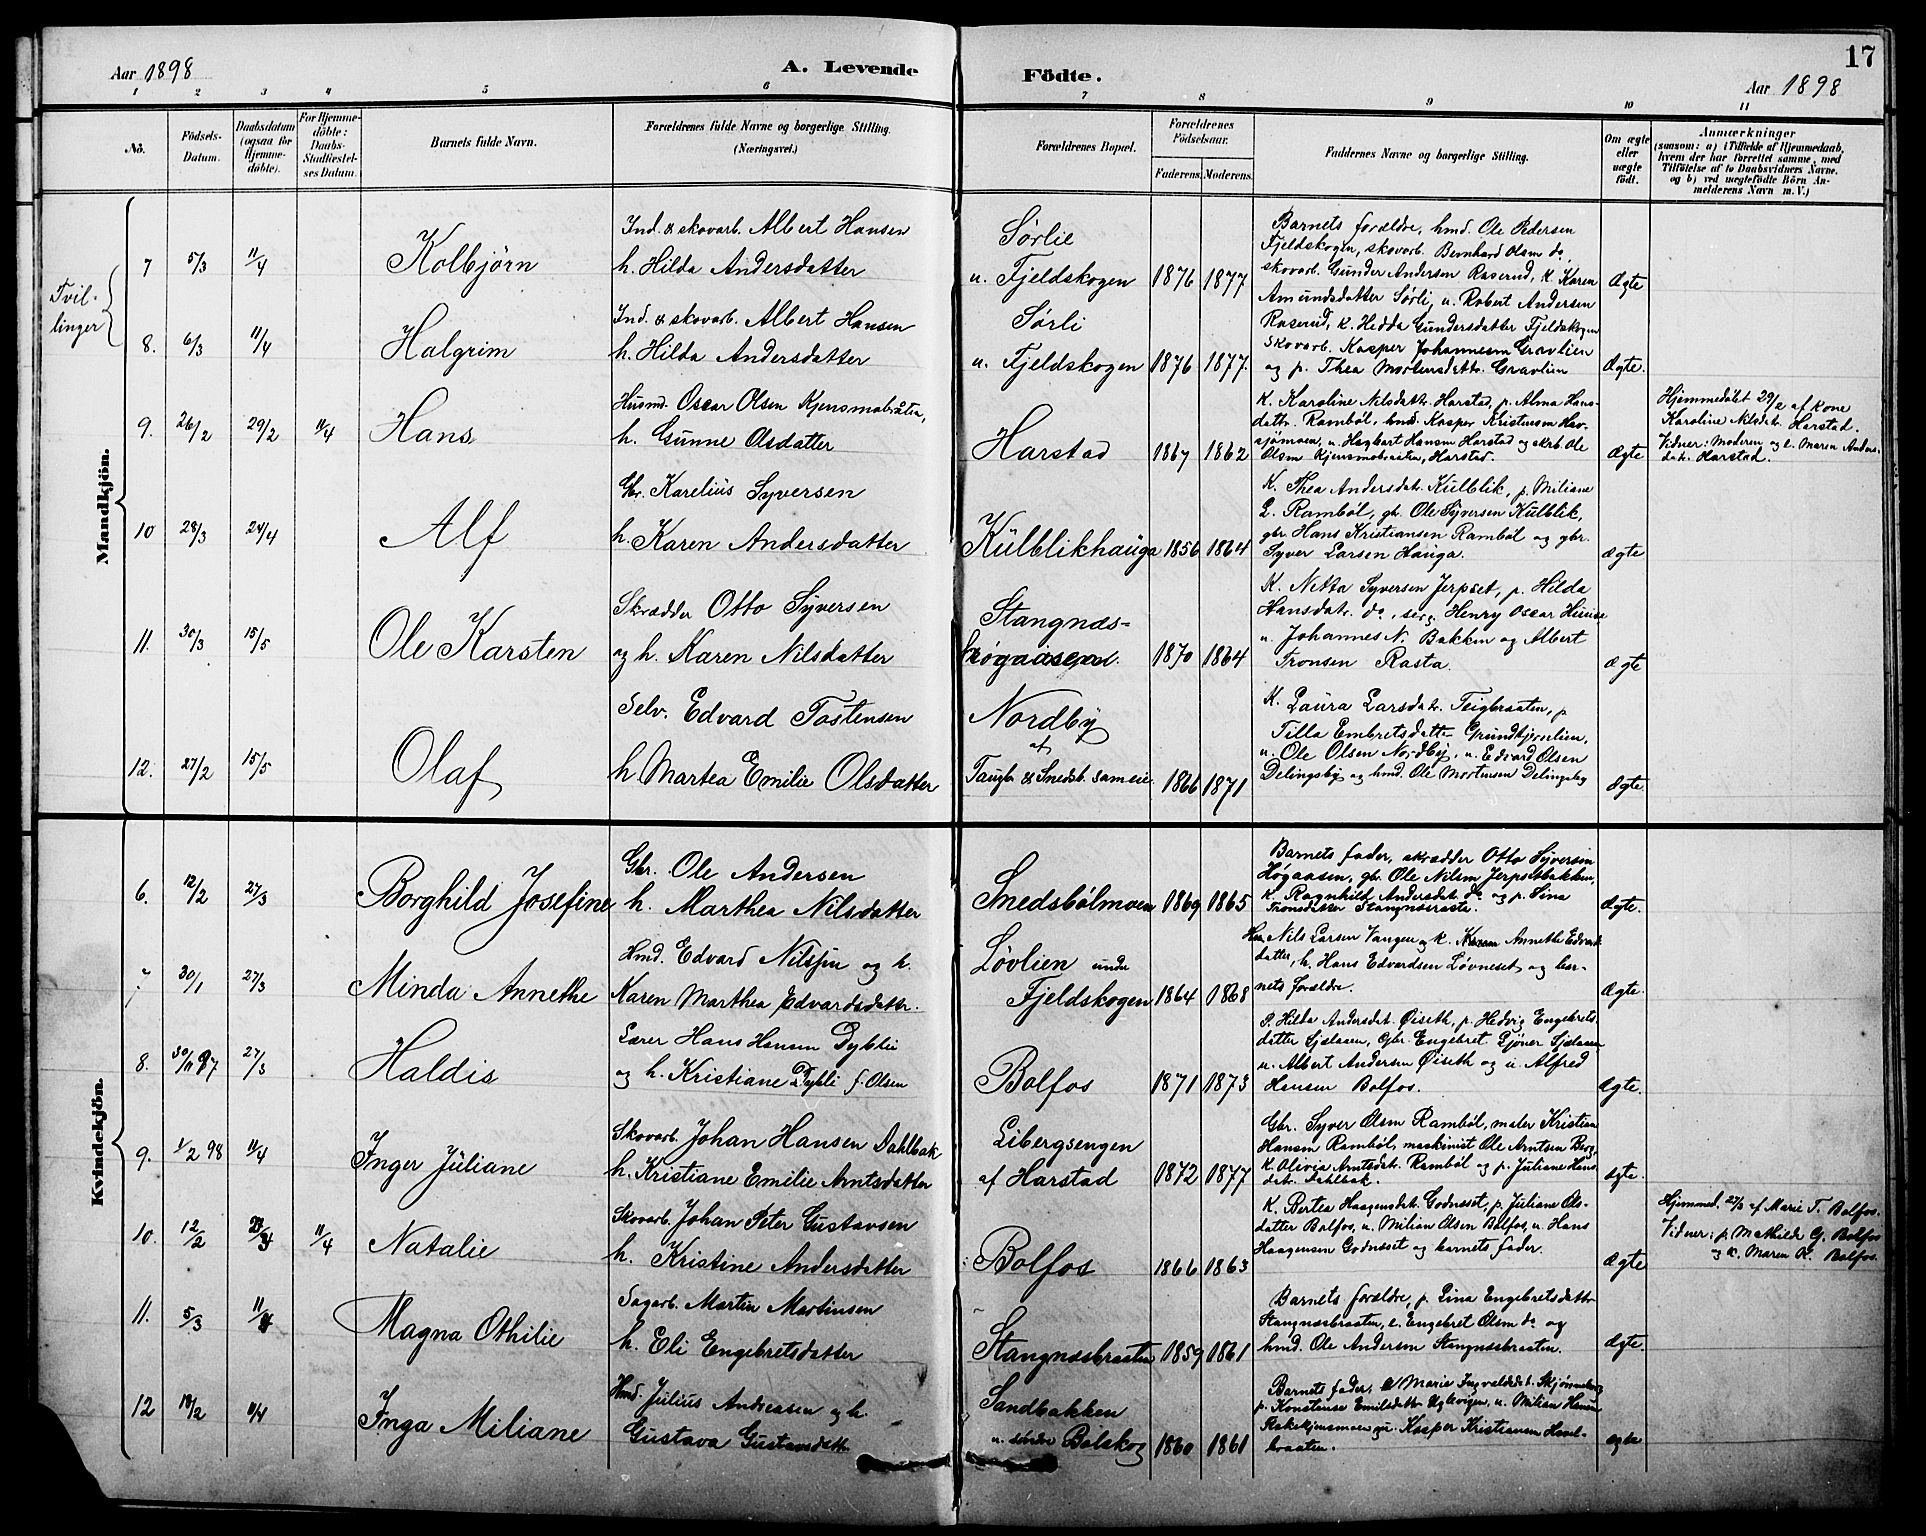 17
Aar 1898
A. Levende Födte.
Aar 1898
1 2 3 4 5 6 7 8 9 10 11
No.
Födsels-
Datum.
Daabsdatum
(ogsaa for
Hjemme-
döbte).
For Hjemme-
döbte:
Daabs-
Stadfæstel-
ses Datum.
Barnets fulde Navn.
Forældrenes fulde Navne og borgerlige Stilling.
(Næringsvei.)
Forældrenes Bopæl.
Forældrenes
Födselsaar.
Faderens. Moderens.
Faddernes Navne og borgerlige Stilling.
Om ægte
eller
uægte
födt.
Anmærkninger
(saasom: a) i Tilfælde af Hjemmedaab,
hvem der har forrettet samme, med
Tilföielse af to Daabsvidners Navne.
og b) ved uægtefödte Börn An-
melderens Navn m. V.)
Mandkjön.
Tvil-
linger
7 5/3 11/4 Kolbjörn
Ind. & skovarb. Albert Hansen
h. Hilda Andersdatter
Sørlie
u. Fjeldskogen 1876 1877
Barnets forældre, hmd. Ole Pedersen
Fjeldskogen, skovarb. Bernhard Olsen do,
skovarb. Gunder Andersen Raserud, k. Karen
Amundsdatter Sørli, u. Robert Andersen
Ægte
8. 6/3 11/4 Halgrim
Ind. & skovarb. Albert Hansen
h. Hilda Andersdatter
Sørli
u. Fjeldskogen 1876 1877.
Raserud, k. Hedda Gundersdatter Fjeldskogen
Skovarb. Kasper Johannesen Gravlien
og p. Thea Mortensdattr. Gravlien
Ægte.
9. 26/2 29/2 11/4 Hans
Husmd. Oscar Olsen Kjensmobråten,
h. Gunne Olsdatter
Harstad 1867 1862
K. Karoline Nilsdatr. Harstad, p. Alma Hans-
dattr. Rambøl, hmd. Kasper Kristensen Hav-
sjømoen, u. Hagbart Hansen Harstad og skrb. Ole
Olsen Kjensmobraaten, Harstad.
Ægte
Hjemmedøbt 29/2 af kone
Karoline Nilsdatr. Harstad.
Vidner: Moderen og e. Maren Anders-
datr. Harstad.
10 28/3 24/4 Alf
Gbr. Karelius Syversen
h. Karen Andersdatter
Külblikhauga 1856 1864
K. Thea Andersdatr. Külblik, p. Miliane
L. Rambøl, gbr. Ole Syversen Külblik,
gbr. Hans Kristiansen Rambøl og gbr.
Syver Larsen Hauga.
ægte
11. 30/3 15/5 Ole Karsten
Skrædder Otto Syversen
og h. Karen Nilsdatter
Stangnæs-
høgaasen. 1870 1864
K. Netta Syversen Jerpset, p. Hilda
Hansdatr. do, serg. Henry Oscar
u. Johannes N. Bakken og Albert
Tronsen Rasta.
ægte
12. 27/2 15/5 Olaf
Selv. Edvard Tostensen
h. Martea Emilie Olsdatter
Nordby
af
Taugbr & Smedsb. sameie. 1866 1871
K. Laura Larsdatr. Teigbraaten, p
Tilla Embretsdattr.
u. Ole Olsen Nordby, u. Edvard Olsen
Delingsby og hmd. Ole Mortensen Delingsby
Ægte.
Kvindekjön.
6. 12/2 27/3 Borghild Josefine
Gbr. Ole Andersen
h. Marthea Nilsdatter
Smedsbølmoen 1869 1865
Barnets fader, skrædder Otto Syversen
Høgaasen, gbr. Ole Nilsen Jerpsetbakken,
k. Ragnhild Andersdatr. do og p. Sina
Tronsdatter Stangnæsrasta.
Ægte.
7. 30/1 27/3 Minda Annethe
Hmd. Edvard Nilssen og h.
Karen Marthea Edvardsdattr.
Løvlien under
Fjeldskogen 1864 1868
Nils Larsen Vangen og k. Annethe Edvards-
datter, h. Hans Edvardsen Løvneset og bar-
nets forældre.
Ægte.
8. 30/11 97 27/3 Haldis
Lærer Hans Hansen Dyblie
og h. Kristiane Dybli f. Olsen
Bolfos 1871 1873
P. Hilda Andersdatr. Øiseth, p. Hedvig Engebrets-
datter Sjølaasen, Gbr. Engebret Ljöner Sjølaasen
u. Albert Andersen Øiseth og u. Alfred
Hansen Bolfos.
Ægte.
9. 1/2 98 11/4 Inger Juliane
Skovarb. Johan Hansen Dahlbak
h. Kristiane Emilie Arntsdatter
Libergsengen
af Harstad 1872 1877
Gbr. Syver Olsen Rambøl, maler Kristian
Hansen Rambøl, maskinist Ole Arntsen Berg,
K. Olivia Arntsdatr. Rambøl og p. Juliane Hans-
datr. Dahlbak.
ægte.
10. 12/2 27/3 11/4 Natalie
Skovarb. Johan Peter Gustavsen
h. Kristine Andersdatter
Bolfos 1866 1863
K. Bertea Haagensdatr. Godnæset, p. Juliane Ols-
datter Bolfos, u. Milian Olsen Bolfos, u. Hans
Haagensen Godnæset og barnets fader.
Ægte
Hjemmed. 27/3 af Marie T. Bolfos.
Vidner: p. Mathilde G. Bolfos
og k. Maren K. Bolfos.
11. 5/3 11/4 Magna Othilie
Sagarb. Martin Martinsen
h. Eli Engebretsdatter
Stangnæsbraaten 1859 1861
Barnets forældre, p. Lina Engebretsdattr
Stangnæsbraaten, e. Engebret Olsen do og
hmd. Ole Andersen Stangnæsbraaten.
Ægte.
12 10/2 11/4 Inga Miliane
Hmd. Julius Andreasen og h.
Gustava Gustavsdattr.
Sandbakken
u. søndre Bølskog 1860 1861
Barnets fader, Marie Ingvaldsdatr.
p. Konstanse Emilsdattr Uglevigen, u. Milian Hansen
Kasper Kristiansen
braaten.
ægte